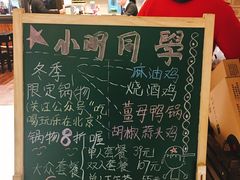 小明同學
冬季
限定锅物
(关注公众号"吃
喝玩乐在北京"
锅物8折喔
麻油鸡
烧酒鸡
姜母鸭锅
胡椒蒜头鸡
大众套餐
单人套餐 39元
双人套餐